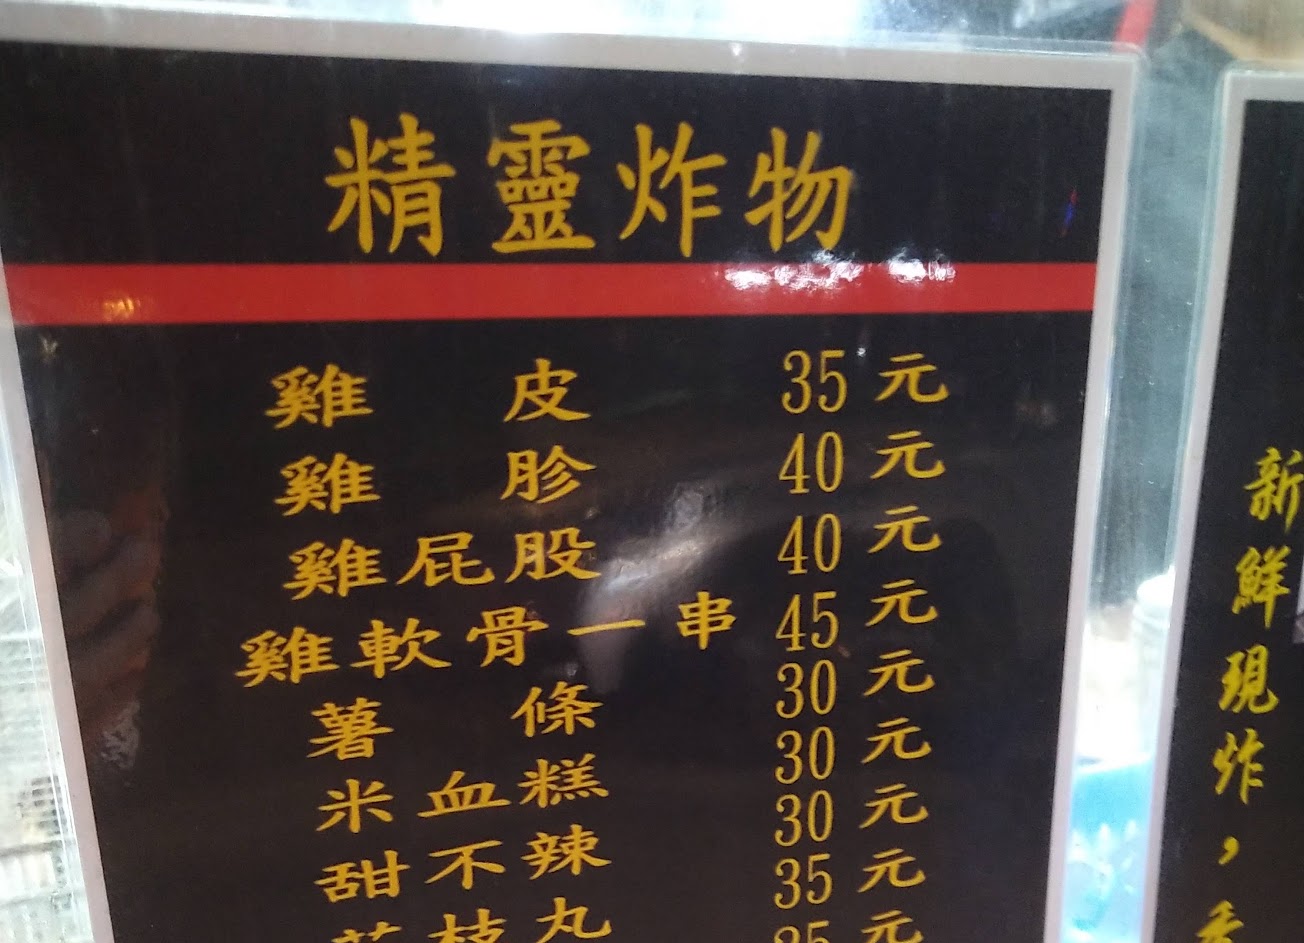 精靈炸物
雞皮 35元
雞胗 40元
雞屁股 40元
雞軟骨一串 45元
薯條 30元
米血糕 30元
甜不辣 30元
枝丸 35元
新鮮現炸，